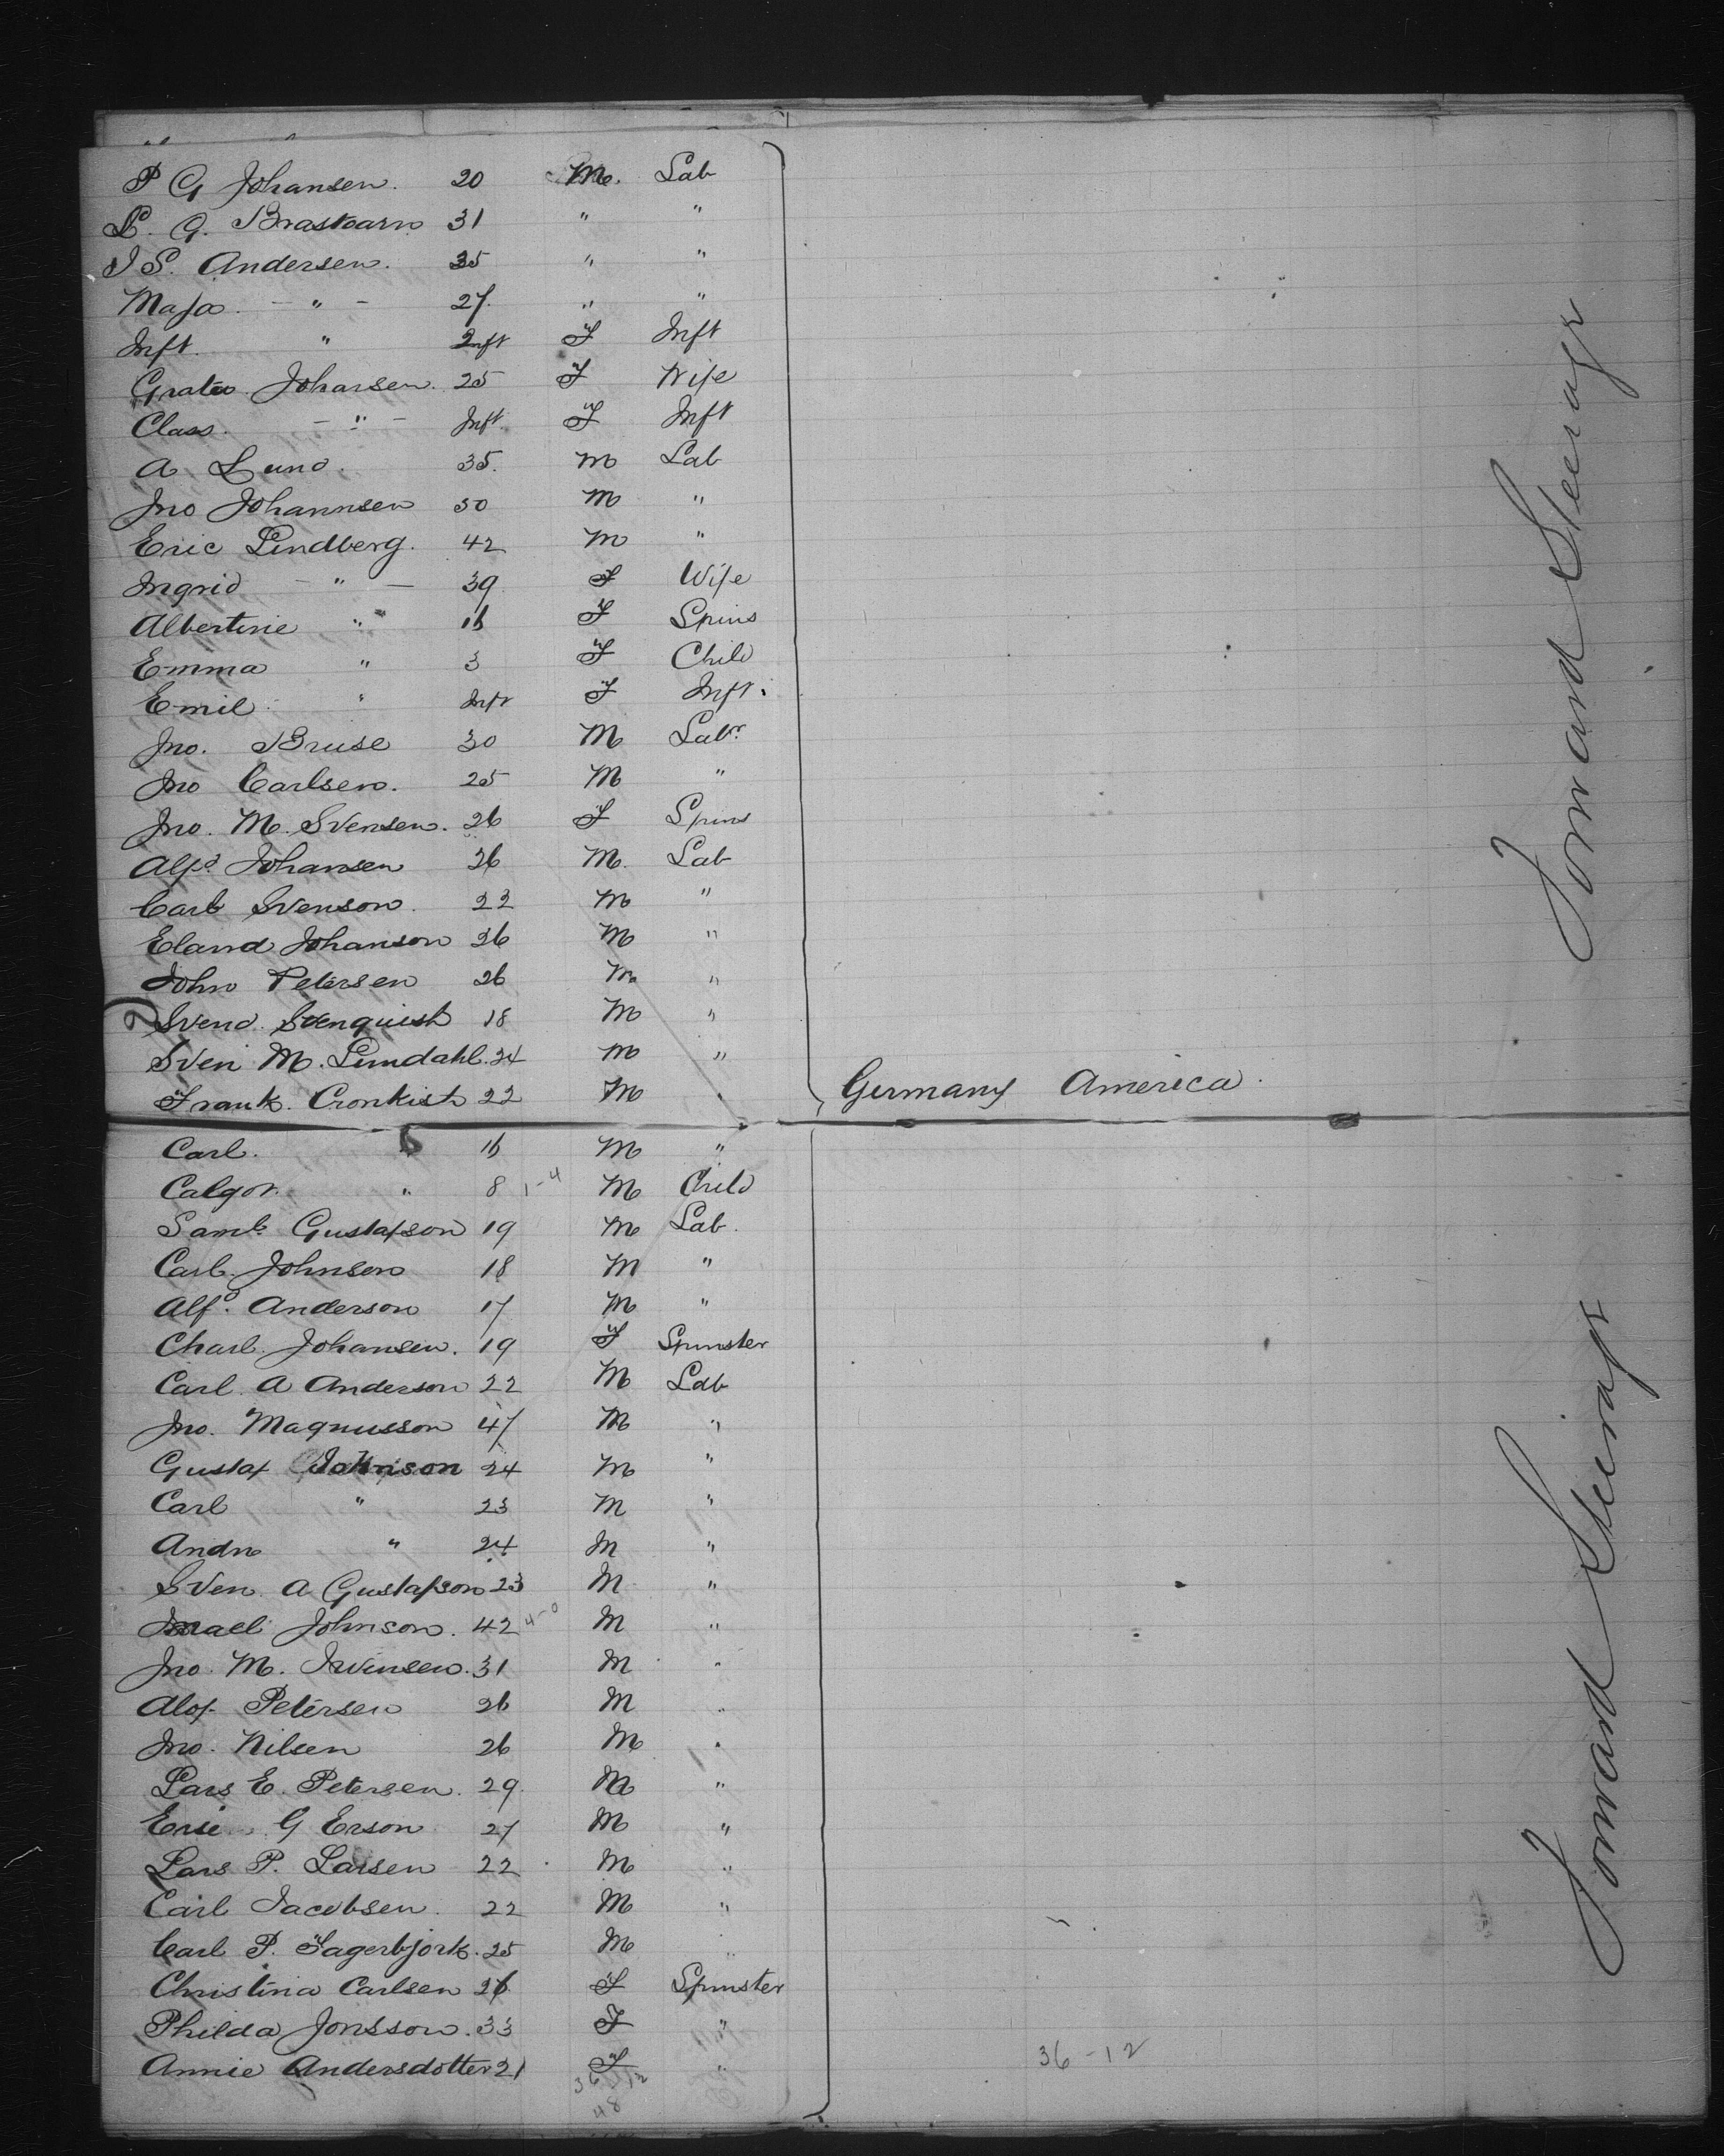 P G Johansen. 20 M. Lab
L. G. Brastoarn 31 " "
J S. Andersen. 35 " "
Maja. - " - 27. " "
Inft. " Inft F Inft
Greta Johansen. 25 F Wife
Class. - " - Inft. F Inft
A Lund. 35. M Lab
Jno Johannsen 30 M "
Eric Lindberg. 42 M "
Ingrid - " - 39 F Wife
Albertine " 16 F Spins
Emma " 3 F Child
Emil " Inft F Inft.
Jno. Bruse 30 M Labr
Jno Carlsen. 25 M "
Jno. M. Svensen. 26 F Spins
Alfd Johansen 26 M. Lab
Carl Svenson. 22 M "
Eland Johanson 26 M "
John Petersen 26 M. "
Svend. Svenquist 18 M "
Sven M. Lundahl. 24 M "
Frank. Cronkist 22 M "
Germany America.
Carl. " 16 M "
Calgot. " 8 1-4 M Child
Saml. Gustafson 19 M Lab.
Carl. Johnson 18 M "
Alfd. Anderson 17 M "
Charl. Johansen. 19 F Spinster
Carl. A Anderson 22 M Lab
Jno. Magnusson 47 M "
Gustaf Johnson 24 M "
Carl " 23 M "
Andw " 24 M "
Sven A Gustafson 23 M "
Israel Johnson. 42 4-0 M "
Jno. M. Svensen. 31 M "
Alex. Petersen 26 M "
Jno. Nilsen 26 M "
Lars E. Petersen. 29. M "
Eric G Erson 27 M "
Lars P. Larsen 22 M "
Carl Jacobsen. 22 M "
Carl P. Fagerbjork. 25 M "
Christina Carlsen 26 F Spinster
Philda Jonsson. 33 F "
Annie Andersdotter 21 F "
36 12
48
36-12
Forward Steerage
Forward Steerage